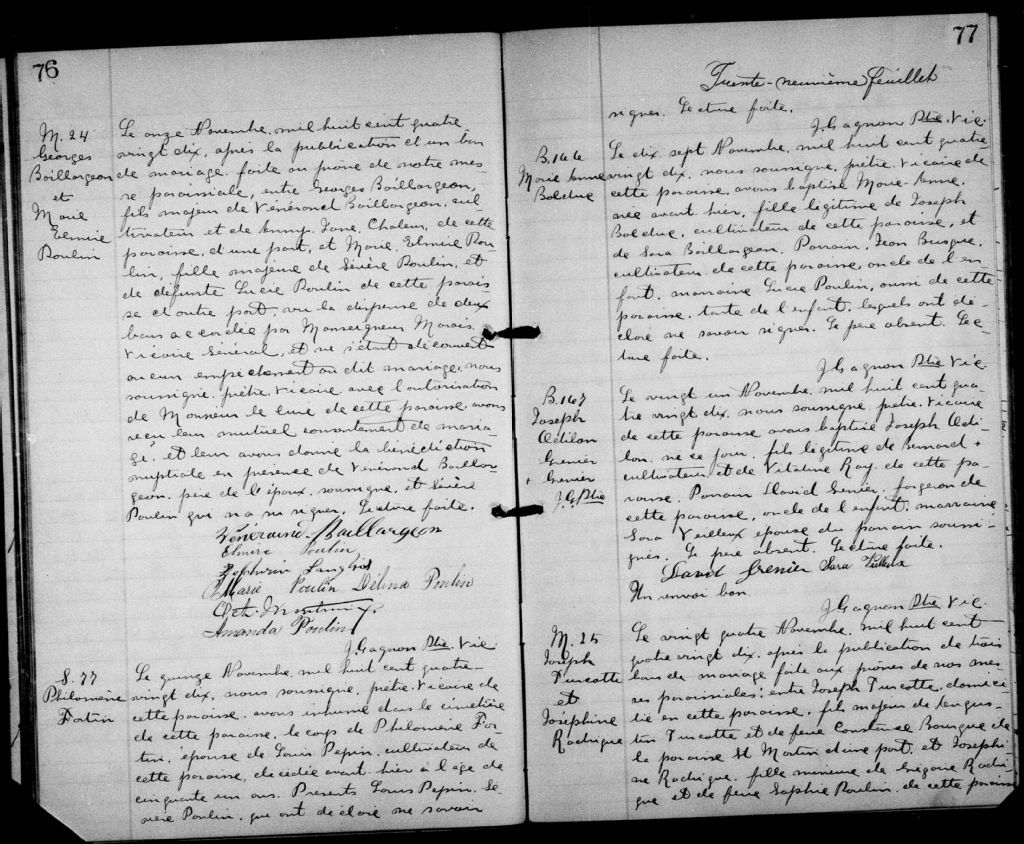 76
M. 24
Georges
Baillargeon
et
Marie
Elmire
Poulin
Le onze Novembre, mil huit cent quatre
vingt dix, après la publication d'un ban
de mariage faite au prône de notre mes
se paroissiale, entre Georges Baillargeon,
fils majeur de Vénérand Baillargeon, cul
tivateur et de Jane, de cette
paroisse, d'une part, et Marie Elmire Pou
lin, fille majeure de Sévère Poulin, et
de défunte Lucie Poulin de cette parois
se d'autre part, vu la dispense de deux
bans accordée par Monseigneur Marois,
Vicaire Général, et ne s'étant découvert
aucun empêchement au dit mariage, nous
soussigné, prêtre, Vicaire avec l'autorisation
de Monsieur le Curé de cette paroisse, avons
reçu leur mutuel consentement de maria
ge, et leur avons donné la bénédiction
nuptiale en présence de Vénérand Baillar
geon, père de l'époux, soussigné, et Sévère
Poulin qui n'a su signer. Lecture faite.
Vénérand Baillargeon
Elmire Poulin
Marie Poulin Délina Poulin
Amanda Poulin
J. Gagnon Ptre. Vic.
S. 77
Philomène
Fortin
Le quinze Novembre, mil huit cent quatre-
vingt dix, nous soussigné, prêtre, Vicaire de
cette paroisse, avons inhumé dans le cimetière
de cette paroisse, le corps de Philomène For
tin, épouse de Louis Pepin, cultivateur de
cette paroisse, décédée avant hier à l'âge de
cinquante un ans. Présents Louis Pepin, Sé-
vère Poulin, qui ont déclaré ne savoir
77
Trente-neuvième feuillet
signer. Lecture faite.
J. Gagnon Ptre. Vic.
B. 166
Marie Anne
Bolduc
Le dix sept Novembre, mil huit cent quatre
vingt dix, nous soussigné, prêtre, Vicaire de
cette paroisse, avons baptisé Marie-Anne,
née avant hier, fille légitime de Joseph
Bolduc, cultivateur de cette paroisse, et
de Sara Baillargeon. Parrain, Jean Busque,
cultivateur de cette paroisse, oncle de l'en
fant, marraine Lucie Poulin, aussi de cette
paroisse, tante de l'enfant, lesquels ont dé-
claré ne savoir signer. Le père absent. Lec-
ture faite.
J. Gagnon Ptre Vic.
B. 167
Joseph
Odilon
Grenier
+ Grenier
J. G. Ptre
Le vingt un Novembre, mil huit cent qua-
tre vingt dix, nous soussigné, prêtre, Vicaire
de cette paroisse, avons baptisé Joseph Odi-
lon, né ce jour, fils légitime de Bernard +
cultivateur, et de Vitaline Roy, de cette pa-
roisse. Parrain David Grenier, forgeron de
cette paroisse, oncle de l'enfant, marraine
Sara Veilleux épouse du parrain soussi-
gnés. Le père absent. Lecture faite.
David Grenier Sara Veilleux
Un renvoi bon.
J. Gagnon Ptre Vic.
M. 25
Joseph
Turcotte
et
Joséphine
Rodrigue
Le vingt quatre Novembre, mil huit cent
quatre vingt dix, après la publication de trois
bans de mariage faite aux prônes de nos mes
ses paroissiales, entre Joseph Turcotte, domici
lié en cette paroisse, fils majeur de Augus-
tin Turcotte et de feue Constance Bourque de
la paroisse St Martin d'une part, et Joséphi-
ne Rodrigue, fille mineure de Grégoire Rodri
gue et de feue Sophie Poulin, de cette paroisse